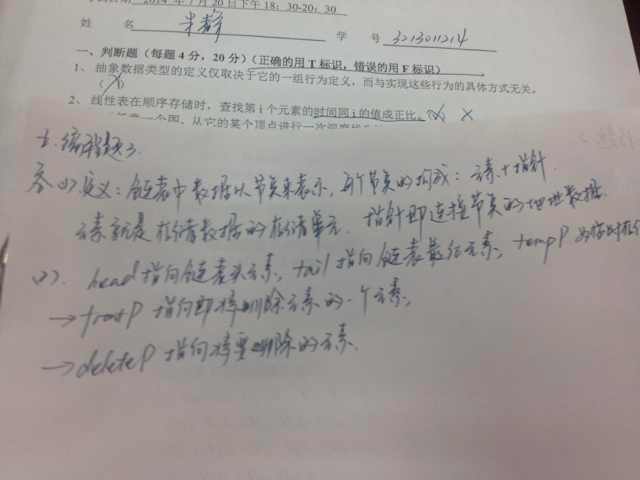 2014 年 7 月 20 日下午 18:30-20:30
姓 名 学 号 3213011214
一、判断题（每题 4 分，20 分）（正确的用 T 标识，错误的用 F 标识）
1、 抽象数据类型的定义仅取决于它的一组行为定义，而与实现这些行为的具体方式无关。
2、 线性表在顺序存储时，查找第 i 个元素的时间同 i 的值成正比。
一个图，从它的某个顶点进行一次
七.编程题3.
答(1)定义：链表中数据以节点来表示，每个节点的构成：元素+指针.
元素就是存储数据的存储单元. 指针即连接节点的地址数据.
(2). head指向链表头元素，tail指向链表最后元素，tempP
→frontP 指向即将删除元素的一个元素,
→deleteP 指向将要删除的元素.